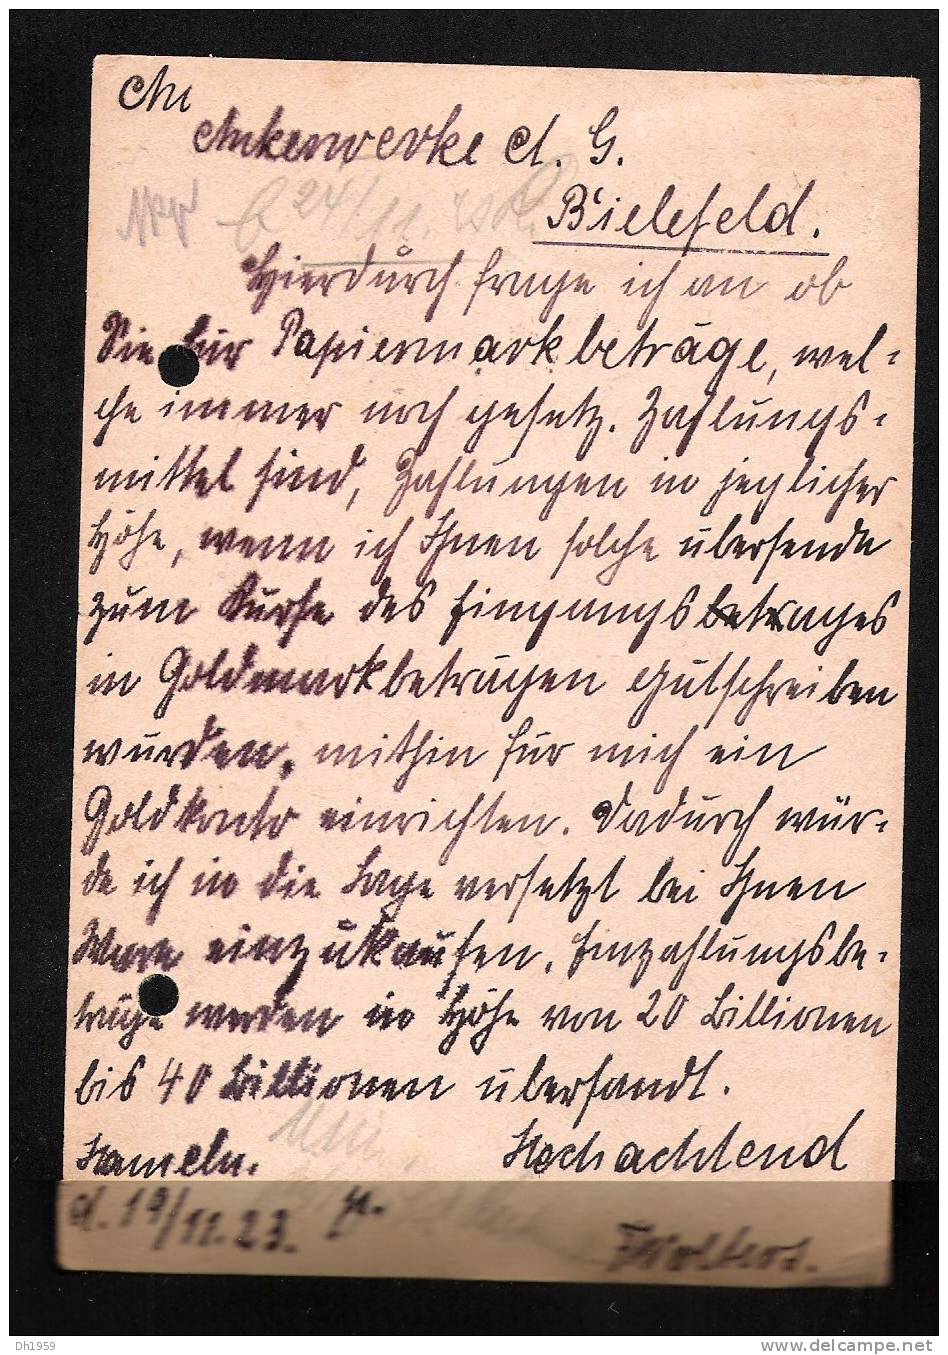 An
Ankerwerke A. G.
b 24/11.
Bielefeld.
Hierdurch frage ich an ob
Sie für Papiermarkbeträge, wel-
che immer noch gesetz. Zahlungs-
mittel sind, Zahlungen in jeglicher
Höhe, wenn ich Ihnen solche übersende
zum Kurse des Eingangsbetrages
in Goldmarkbeträgen gutschreiben
würden, mithin für mich ein
Goldkonto einrichten. Dadurch wür-
de ich in die Lage versetzt bei Ihnen
Ware einzukaufen. Einzahlungsbe-
träge werden in Höhe von 20 Billionen
bis 40 Billionen übersandt.
Hameln. Hochachtend
d. 19/11.23. Wolters.
DH1959
www.delcampe.net